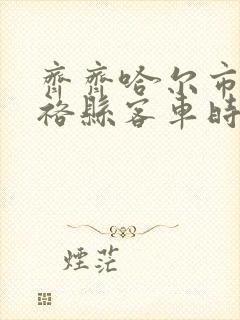 齊齊哈尔市
裕縣客車時
煙茫